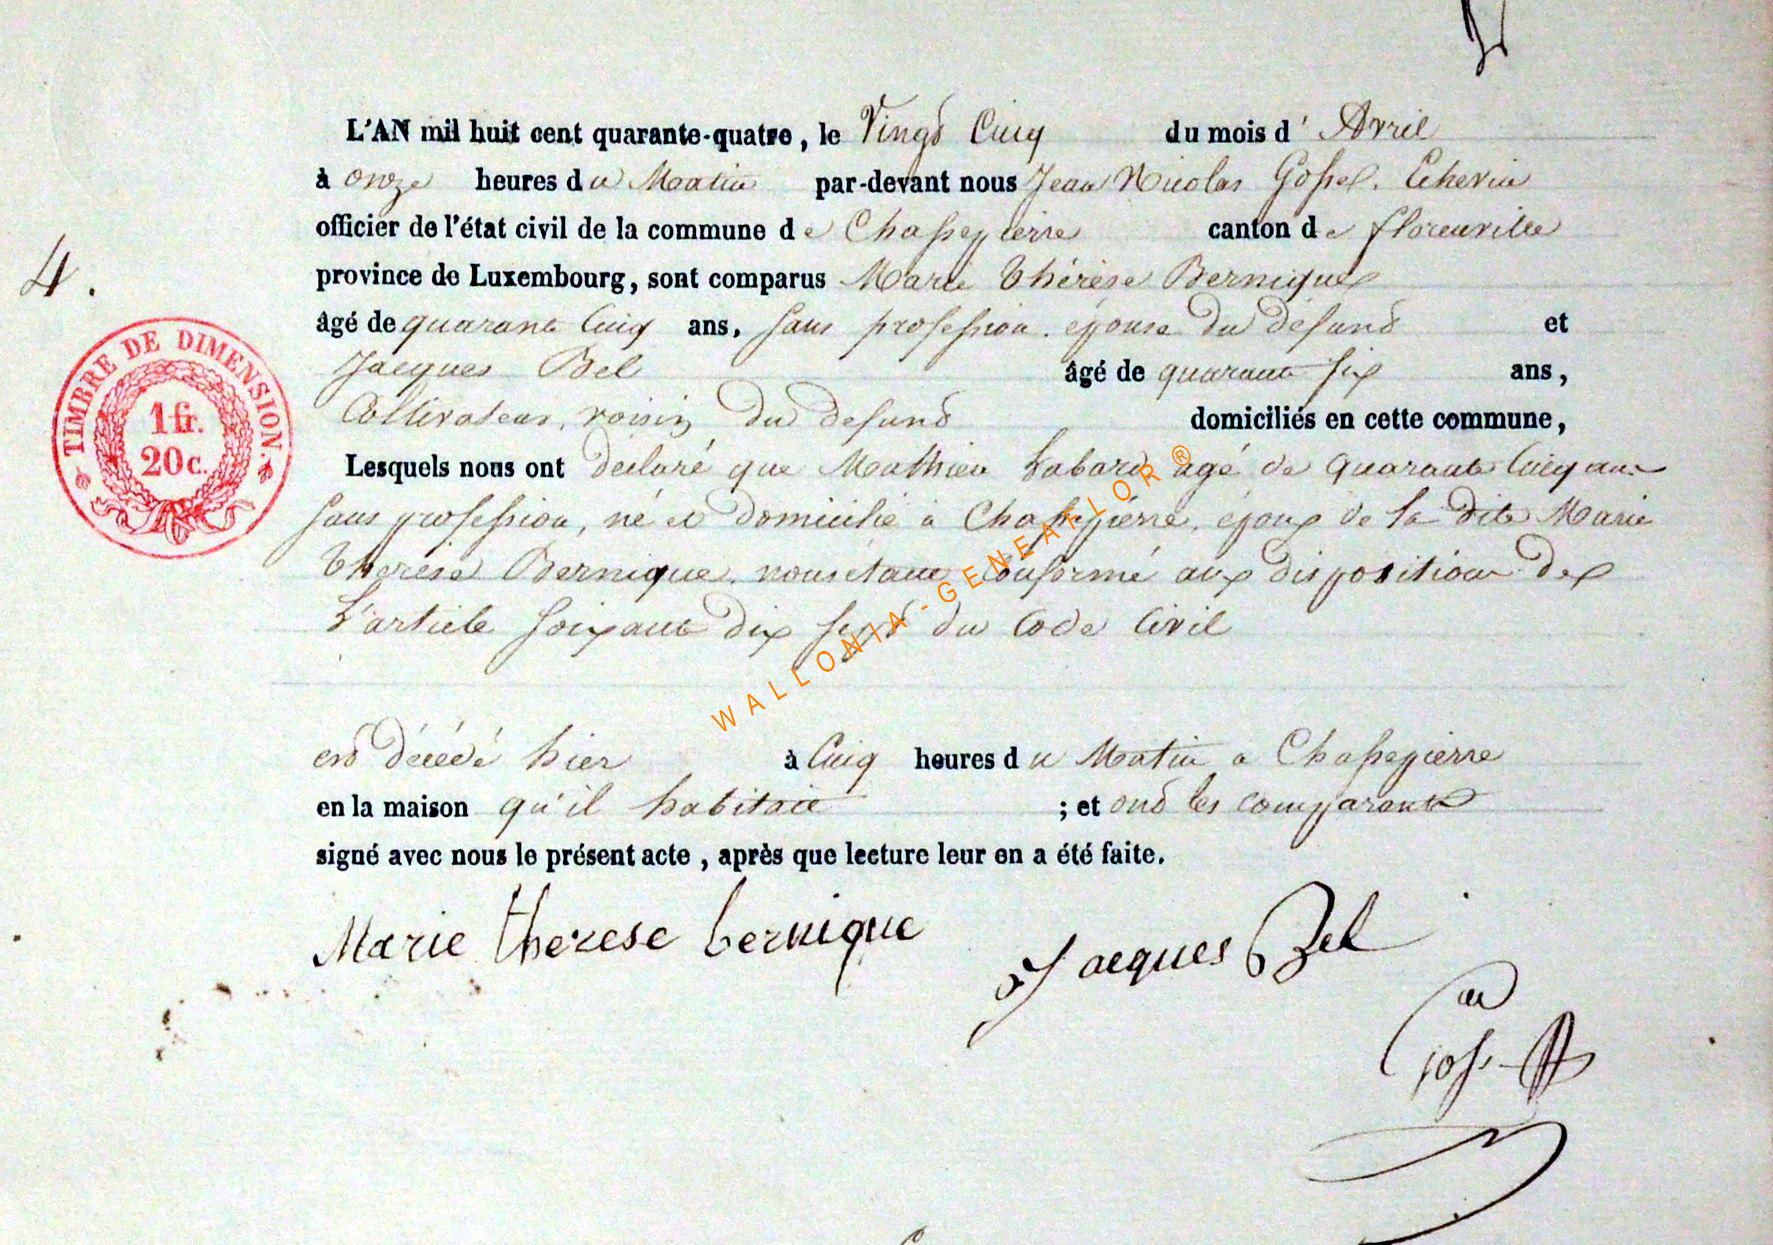 L'AN mil huit cent quarante-quatre, le Vingt Cinq du mois d' Avril
à onze heures du Matin par-devant nous Jean Nicolas Gossel. Echevin
officier de l'état civil de la commune de Chassepierre canton de florenville
province de Luxembourg, sont comparus Marie thérèse Bernique
4.
âgé de quarante Cinq ans, sans profession. épouse du défunt et
Jacques Bel âgé de quarante six ans,
Cultivateur, voisin du defunt domiciliés en cette commune,
Lesquels nous ont déclaré que Mathieu Labard agé de Quarante Cinq ans
sans profession, né et domicilié a Chassepierre, époux de la dite Marie
thérèse Bernique. nous étant conformé aux disposition de
L'article soixante dix sept du Code Civil
est décédé hier à Cinq heures du Matin a Chassepierre
en la maison qu'il habitait ; et ont les comparants
signé avec nous le présent acte, après que lecture leur en a été faite.
Marie therese bernique
Jacques Bel
TIMBRE DE DIMENSION.
1 fr.
20 c.
WALLONIA-GENEAFLOR ®